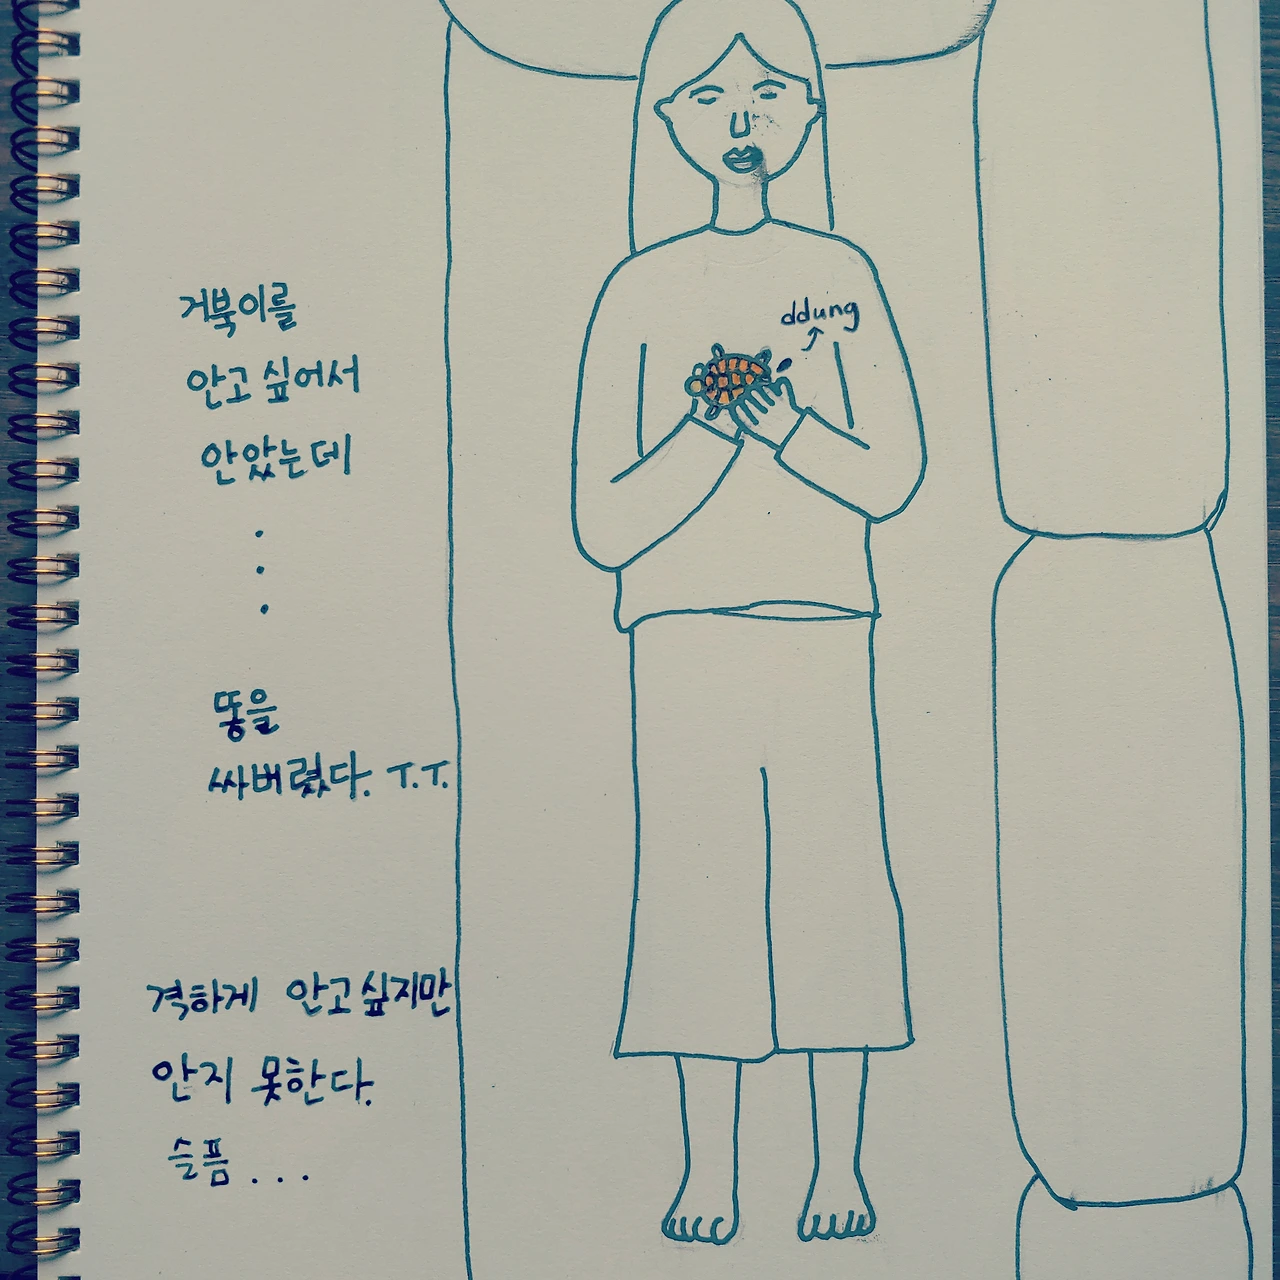 거북이를
안고 싶어서
안았는데
.
.
.
똥을
싸버렸다. T.T.
격하게 안고싶지만
안지 못한다.
슬픔...
ddung